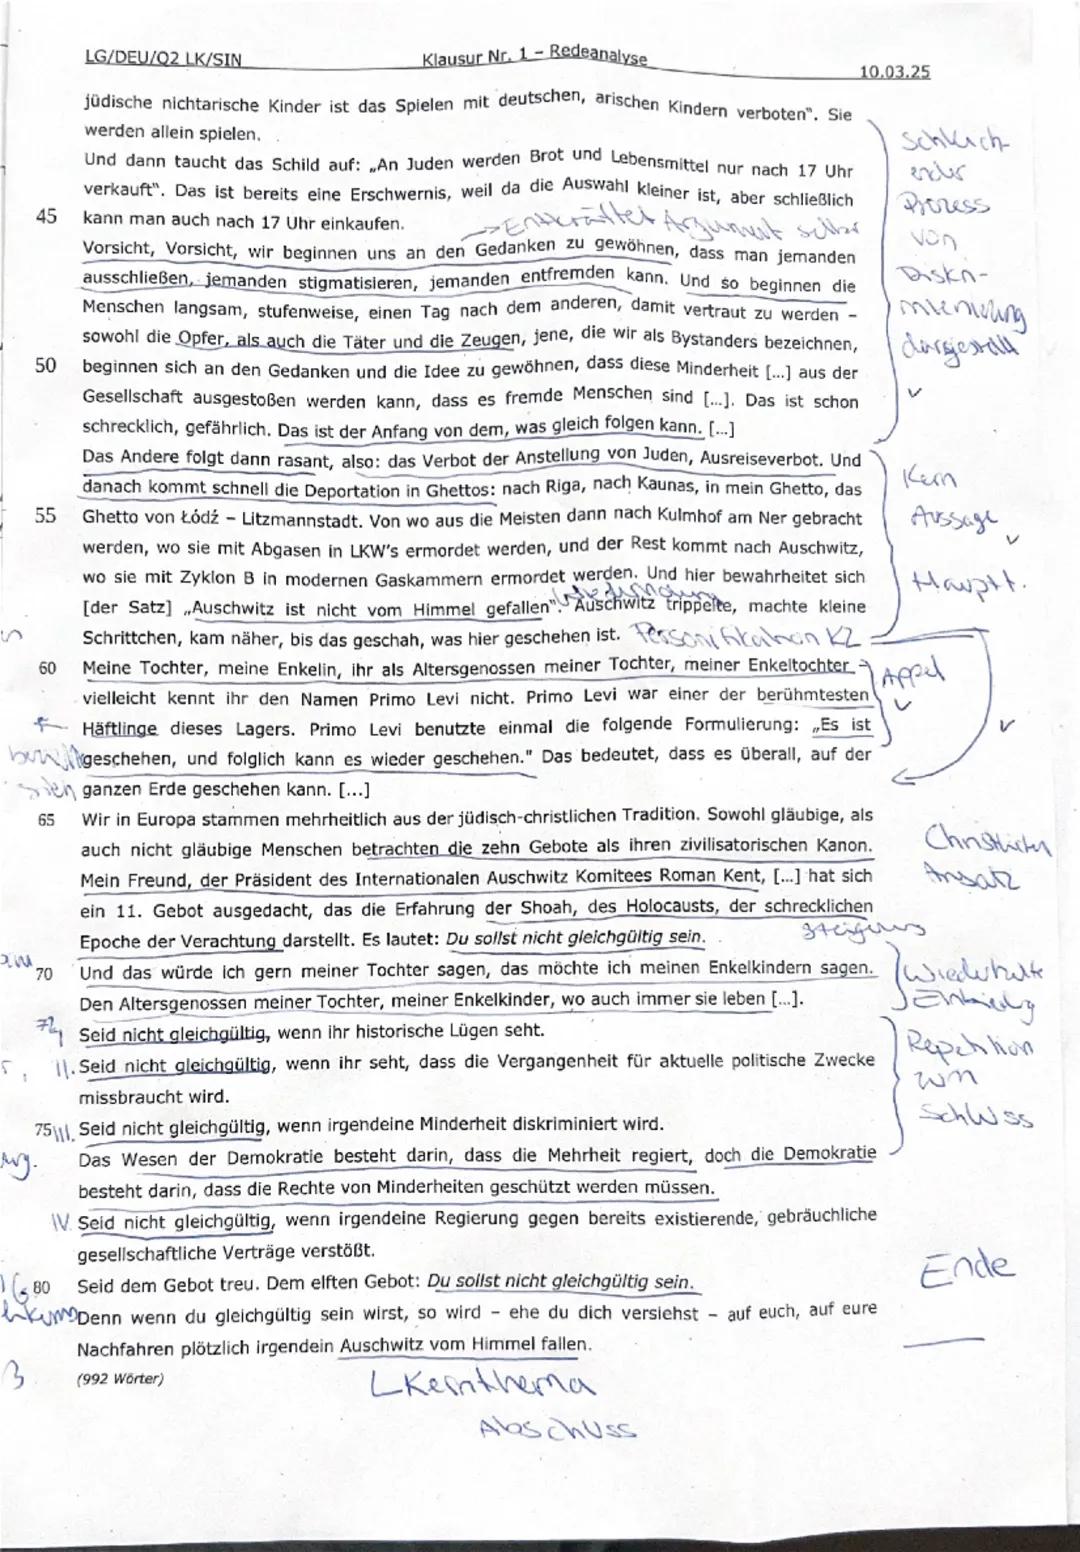 LG/DEU/Q2 LK/SIN Klausur Nr. 1 – Redeanalyse 10.03.25
jüdische nichtarische Kinder ist das Spielen mit deutschen, arischen Kindern verboten". Sie
werden allein spielen.
Und dann taucht das Schild auf: „An Juden werden Brot und Lebensmittel nur nach 17 Uhr
verkauft". Das ist bereits eine Erschwernis, weil da die Auswahl kleiner ist, aber schließlich
45 kann man auch nach 17 Uhr einkaufen.
→ Entkräftet Argument selber
Vorsicht, Vorsicht, wir beginnen uns an den Gedanken zu gewöhnen, dass man jemanden
ausschließen, jemanden stigmatisieren, jemanden entfremden kann. Und so beginnen die
Menschen langsam, stufenweise, einen Tag nach dem anderen, damit vertraut zu werden –
sowohl die Opfer, als auch die Täter und die Zeugen, jene, die wir als Bystanders bezeichnen,
50 beginnen sich an den Gedanken und die Idee zu gewöhnen, dass diese Minderheit [...] aus der
Gesellschaft ausgestoßen werden kann, dass es fremde Menschen sind [...]. Das ist schon
schrecklich, gefährlich. Das ist der Anfang von dem, was gleich folgen kann. [...]
schleich-
ender
Prozess
von
Diskri-
minierung
dargestellt
Das Andere folgt dann rasant, also: das Verbot der Anstellung von Juden, Ausreiseverbot. Und
danach kommt schnell die Deportation in Ghettos: nach Riga, nach Kaunas, in mein Ghetto, das
55 Ghetto von Łódź – Litzmannstadt. Von wo aus die Meisten dann nach Kulmhof am Ner gebracht
werden, wo sie mit Abgasen in LKW's ermordet werden, und der Rest kommt nach Auschwitz,
wo sie mit Zyklon B in modernen Gaskammern ermordet werden. Und hier bewahrheitet sich
[der Satz] „Auschwitz ist nicht vom Himmel gefallen". Auschwitz trippelte, machte kleine
Schrittchen, kam näher, bis das geschah, was hier geschehen ist. Personifikation KZ
Kern
Aussage
Hauptt.
60 Meine Tochter, meine Enkelin, ihr als Altersgenossen meiner Tochter, meiner Enkeltochter –
Appel
vielleicht kennt ihr den Namen Primo Levi nicht. Primo Levi war einer der berühmtesten
Häftlinge dieses Lagers. Primo Levi benutzte einmal die folgende Formulierung: „Es ist
geschehen, und folglich kann es wieder geschehen." Das bedeutet, dass es überall, auf der
ganzen Erde geschehen kann. [...]
65 Wir in Europa stammen mehrheitlich aus der jüdisch-christlichen Tradition. Sowohl gläubige, als
auch nicht gläubige Menschen betrachten die zehn Gebote als ihren zivilisatorischen Kanon.
Mein Freund, der Präsident des Internationalen Auschwitz Komitees Roman Kent, [...] hat sich
ein 11. Gebot ausgedacht, das die Erfahrung der Shoah, des Holocausts, der schrecklichen
Epoche der Verachtung darstellt. Es lautet: Du sollst nicht gleichgültig sein.
Christlicher
Ansatz
Steigerung
70 Und das würde ich gern meiner Tochter sagen, das möchte ich meinen Enkelkindern sagen.
Den Altersgenossen meiner Tochter, meiner Enkelkinder, wo auch immer sie leben [...].
Wiederholte
Seid nicht gleichgültig, wenn ihr historische Lügen seht.
II. Seid nicht gleichgültig, wenn ihr seht, dass die Vergangenheit für aktuelle politische Zwecke
missbraucht wird.
75 III. Seid nicht gleichgültig, wenn irgendeine Minderheit diskriminiert wird.
Repetition
zum
Schluss
Das Wesen der Demokratie besteht darin, dass die Mehrheit regiert, doch die Demokratie
besteht darin, dass die Rechte von Minderheiten geschützt werden müssen.
IV. Seid nicht gleichgültig, wenn irgendeine Regierung gegen bereits existierende, gebräuchliche
gesellschaftliche Verträge verstößt.
80 Seid dem Gebot treu. Dem elften Gebot: Du sollst nicht gleichgültig sein.
Ende
Denn wenn du gleichgültig sein wirst, so wird – ehe du dich versiehst – auf euch, auf eure
Nachfahren plötzlich irgendein Auschwitz vom Himmel fallen.
(992 Wörter)
Kernthema
Abschuss